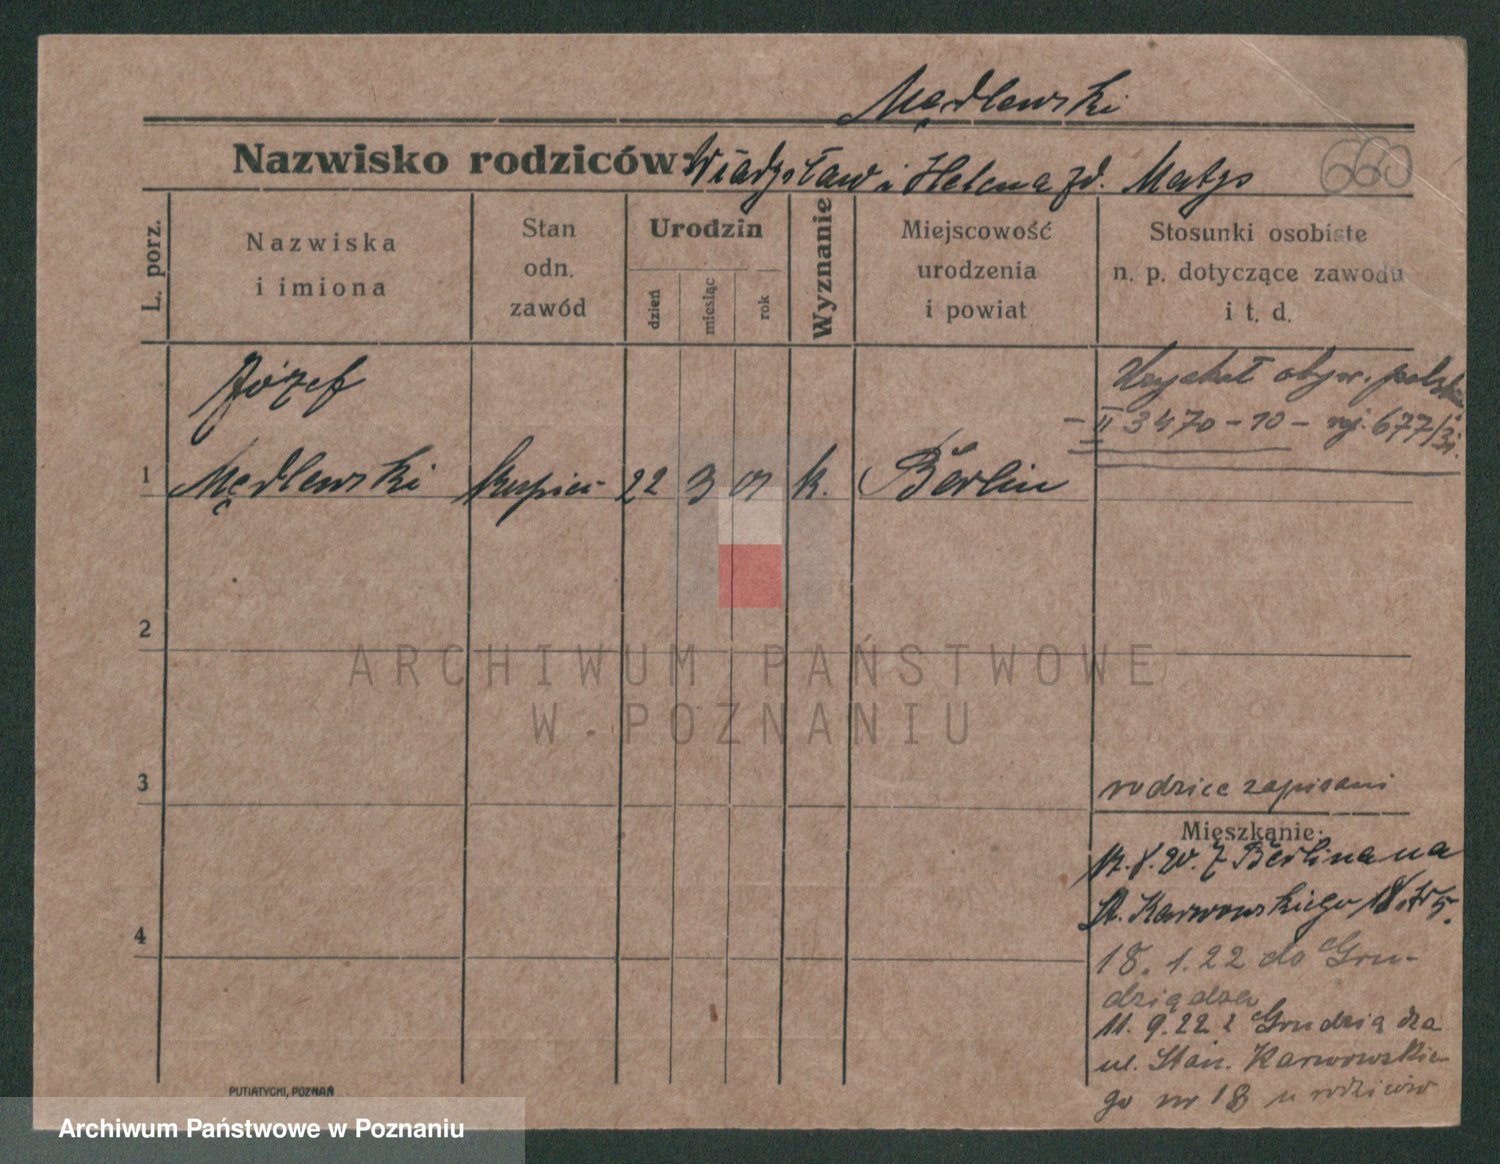 Mędlewski
Nazwisko rodziców: Władysław i Helena zd. Matys
660
L. porz.
Nazwiska
i imiona
Stan
odn.
zawód
Urodzin
dzień
miesiąc
rok
Wyznanie
Miejscowość
urodzenia
i powiat
Stosunki osobiste
n. p. dotyczące zawodu
i t. d.
Uzyskał obyw. polskie
– II 3470 – 10 – 677/31.
Józef
1 Mędlewski kupiec 22 3 01 k. Berlin
2
ARCHIWUM PAŃSTWOWE
W POZNANIU
3
rodzice zapisani
Mieszkanie:
20. z Berlina na
St. Karwowskiego 18.
4
18. 1. 22 do Gru-
dziądza
11. 9. 22 z Grudziądza
ul. Stan. Karwowskie-
go nr 18 u rodziców
PUTIATYCKI, POZNAŃ
Archiwum Państwowe w Poznaniu